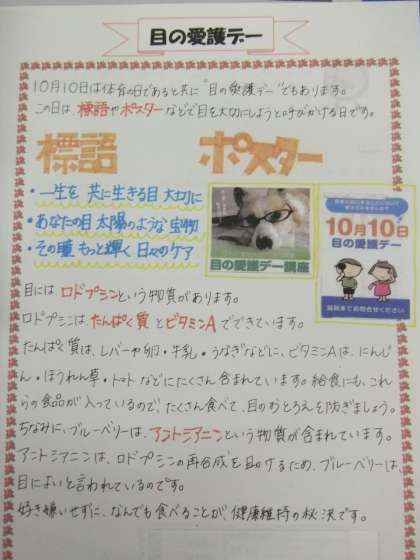 目の愛護デー
10月10日は体育の日であると共に"目の愛護デー"でもあります。
この日は、標語やポスターなどで目を大切にしようと呼びかける日です。
標語
ポスター
・一生を 共に生きる目 大切に
・あなたの目 太陽のような 宝物
・その瞳 もっと輝く 日々のケア
目の愛護デー講座
10月10日
目の愛護デー
目には ロドプシンという物質があります。
ロドプシンは、たんぱく質とビタミンAでできています。
たんぱく質は、レバーや卵・牛乳・うなぎなどに、ビタミンAは、にんじ
ん・ほうれん草・トマトなどにたくさん含まれています。給食にも、これ
らの食品が入っているので、たくさん食べて、目のおとろえを防ぎましょう。
ちなみに、ブルーベリーは、アントシアニンという物質が含まれています。
アントシアニンは、ロドプシンの再合成を助けるため、ブルーベリーは、
目によいと言われているのです。
好き嫌いせずに、なんでも食べることが、健康維持の秘決です。